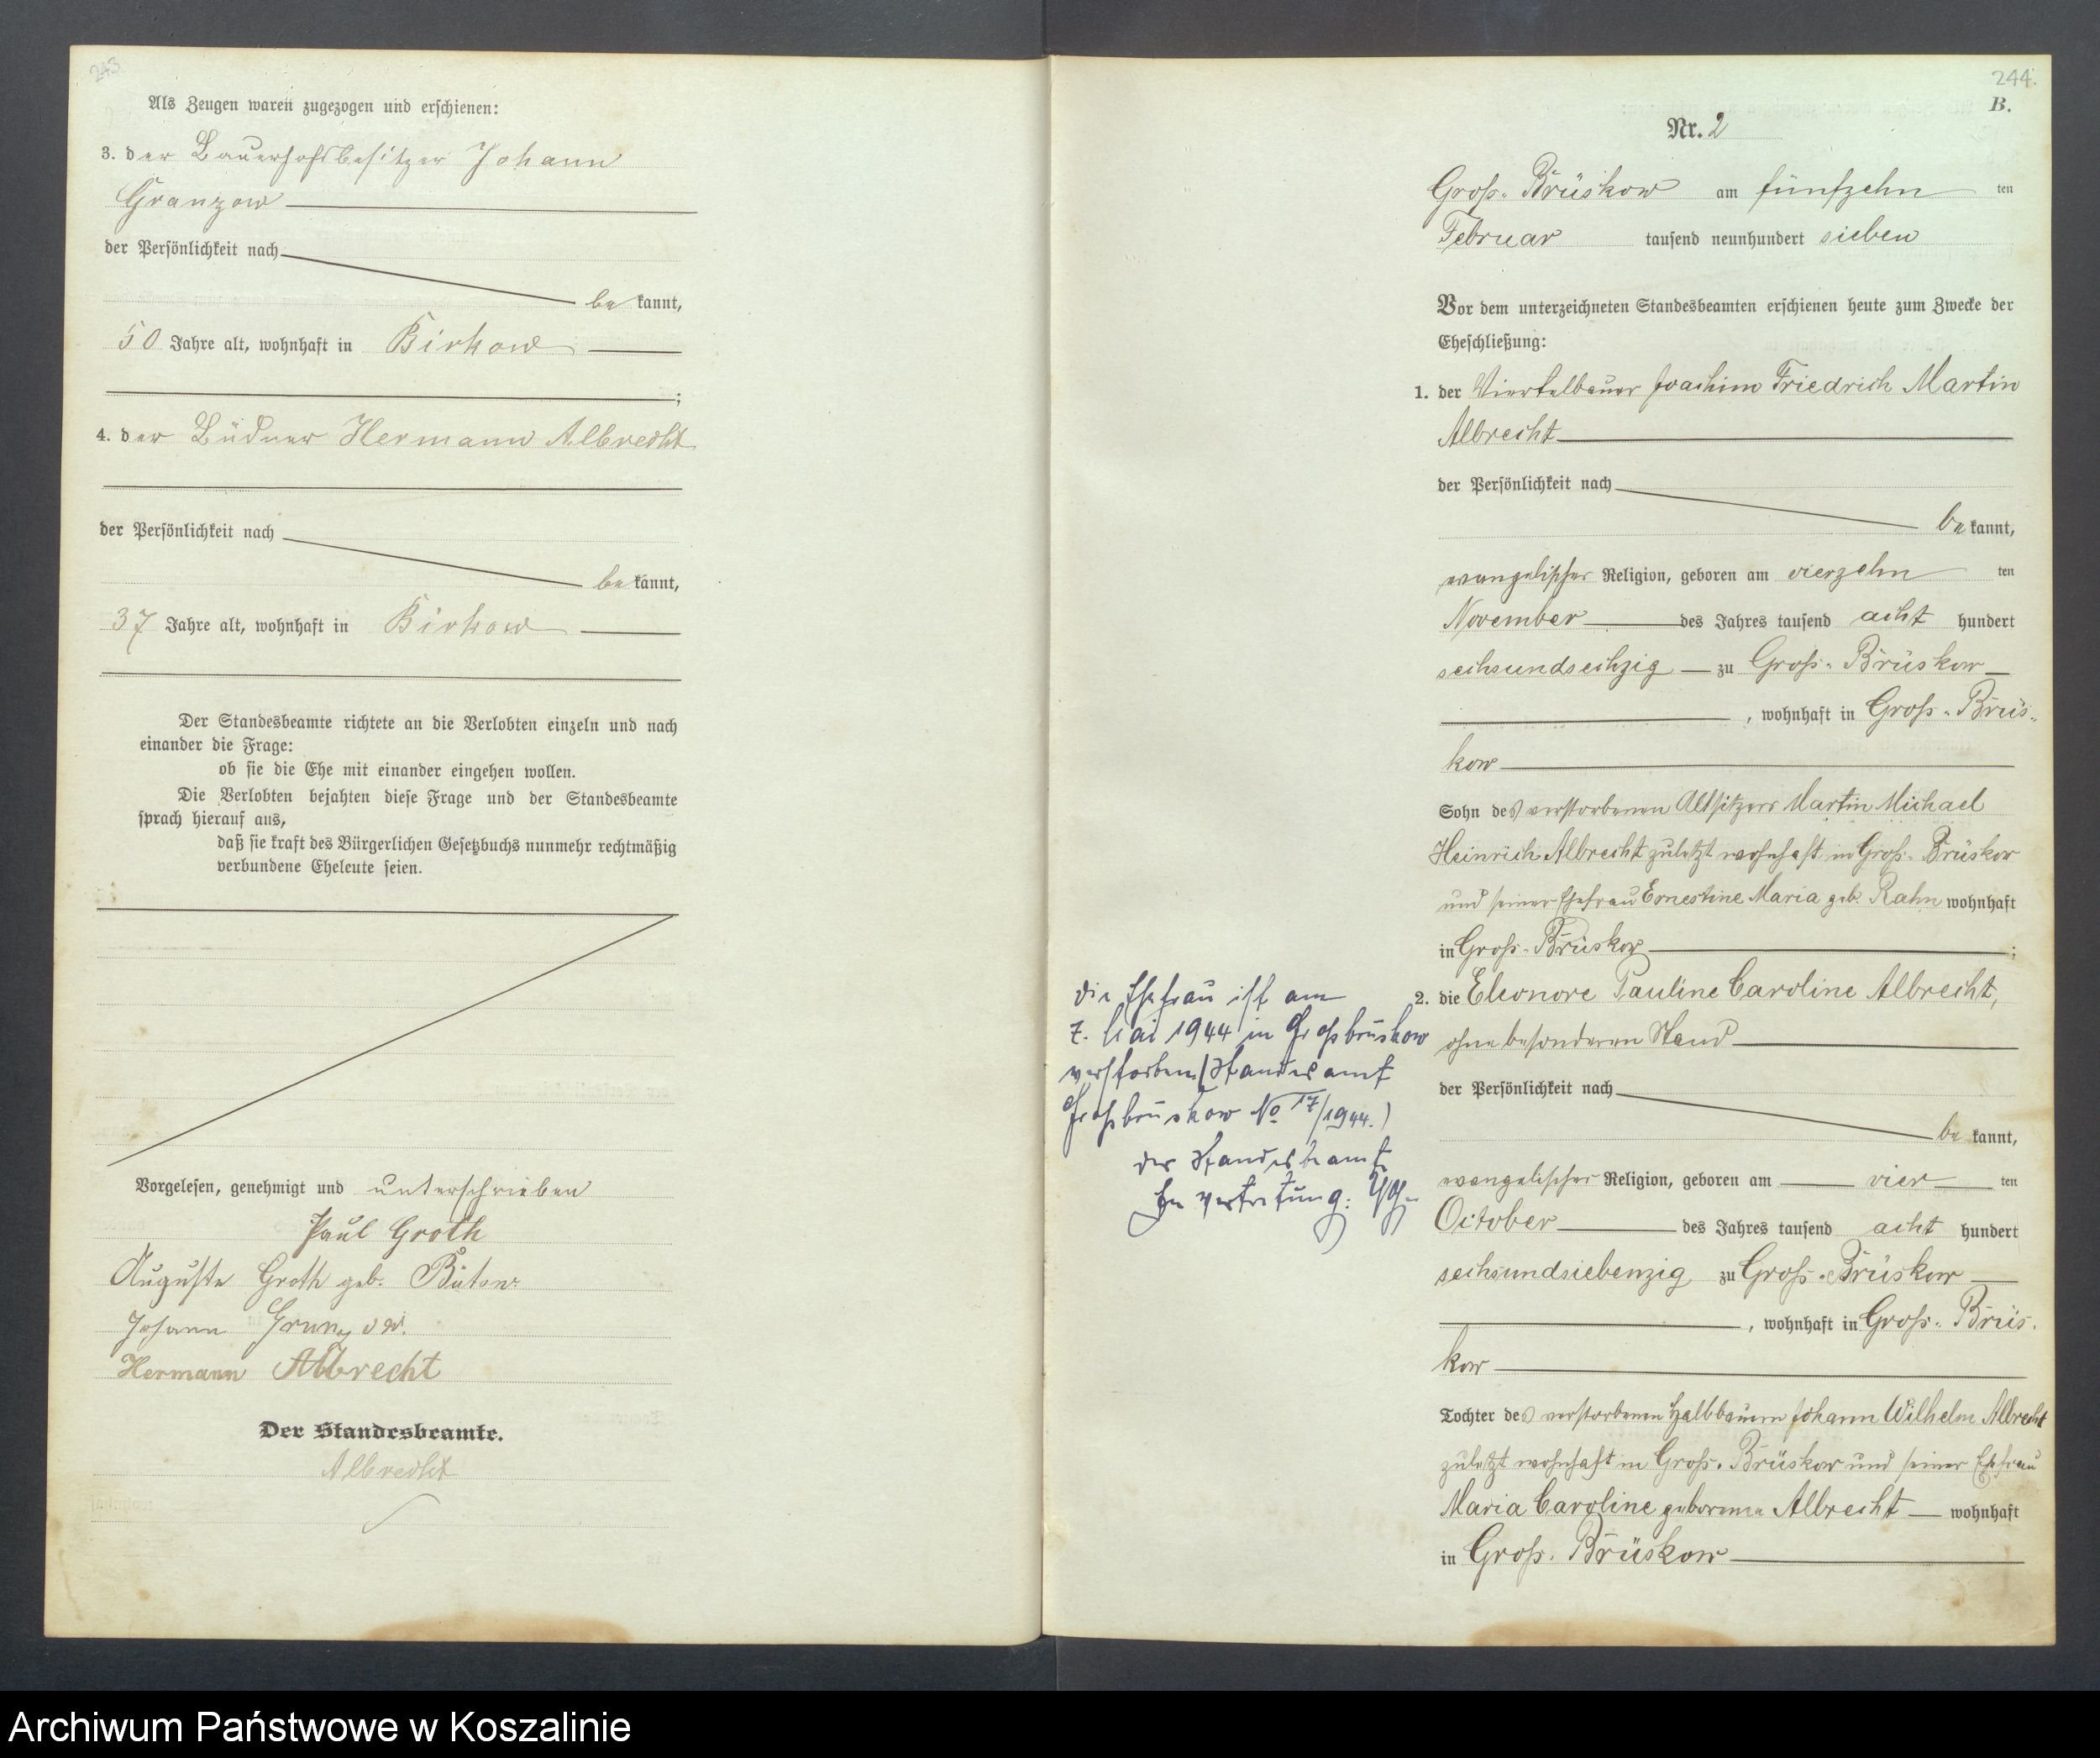 243
Als Zeugen waren zugezogen und erschienen:
3. der Bauerhofsbesitzer Johann
Granzow
der Persönlichkeit nach
be kannt,
50 Jahre alt, wohnhaft in Birkow
;
4. der Büdner Hermann Albrecht
der Persönlichkeit nach
be kannt,
37 Jahre alt, wohnhaft in Birkow
Der Standesbeamte richtete an die Verlobten einzeln und nach
einander die Frage:
ob sie die Ehe mit einander eingehen wollen.
Die Verlobten bejahten diese Frage und der Standesbeamte
sprach hierauf aus,
daß sie kraft des Bürgerlichen Gesetzbuchs nunmehr rechtmäßig
verbundene Eheleute seien.
Vorgelesen, genehmigt und unterschrieben
Paul Groth
Auguste Groth geb. Bütow
Johann Granzow.
Hermann Albrecht
Der Standesbeamte.
Albrecht
244.
B.
Nr. 2
Groß-Brüskow am fünfzehn ten
Februar tausend neunhundert sieben
Vor dem unterzeichneten Standesbeamten erschienen heute zum Zwecke der
Eheschließung:
1. der Viertelbauer Joachim Friedrich Martin
Albrecht
der Persönlichkeit nach
be kannt,
evangelischer Religion, geboren am vierzehn ten
November des Jahres tausend acht hundert
sechsundsechzig zu Groß-Brüskow
, wohnhaft in Groß-Brüs-
kow
Sohn des verstorbenen Altsitzers Martin Michael
Heinrich Albrecht zuletzt wohnhaft in Groß-Brüskow
und seiner Ehefrau Ernestine Maria geb. Rahn wohnhaft
in Groß-Brüskow ;
2. die Eleonore Pauline Caroline Albrecht,
ohne besonderen Stand
der Persönlichkeit nach
be kannt,
evangelischer Religion, geboren am vier ten
October des Jahres tausend acht hundert
sechsundsiebenzig zu Groß-Brüskow
, wohnhaft in Groß-Brüs-
kow
Tochter des verstorbenen Halbbauern Johann Wilhelm Albrecht
zuletzt wohnhaft in Groß-Brüskow und seiner Ehefrau
Maria Caroline geborene Albrecht wohnhaft
in Groß-Brüskow
die Ehefrau ist am
7. Mai 1944 in Großbrüskow
verstorben (Standesamt
Großbrüskow No 17/1944.)
der Standesbeamte
In Vertretung:
Archiwum Państwowe w Koszalinie